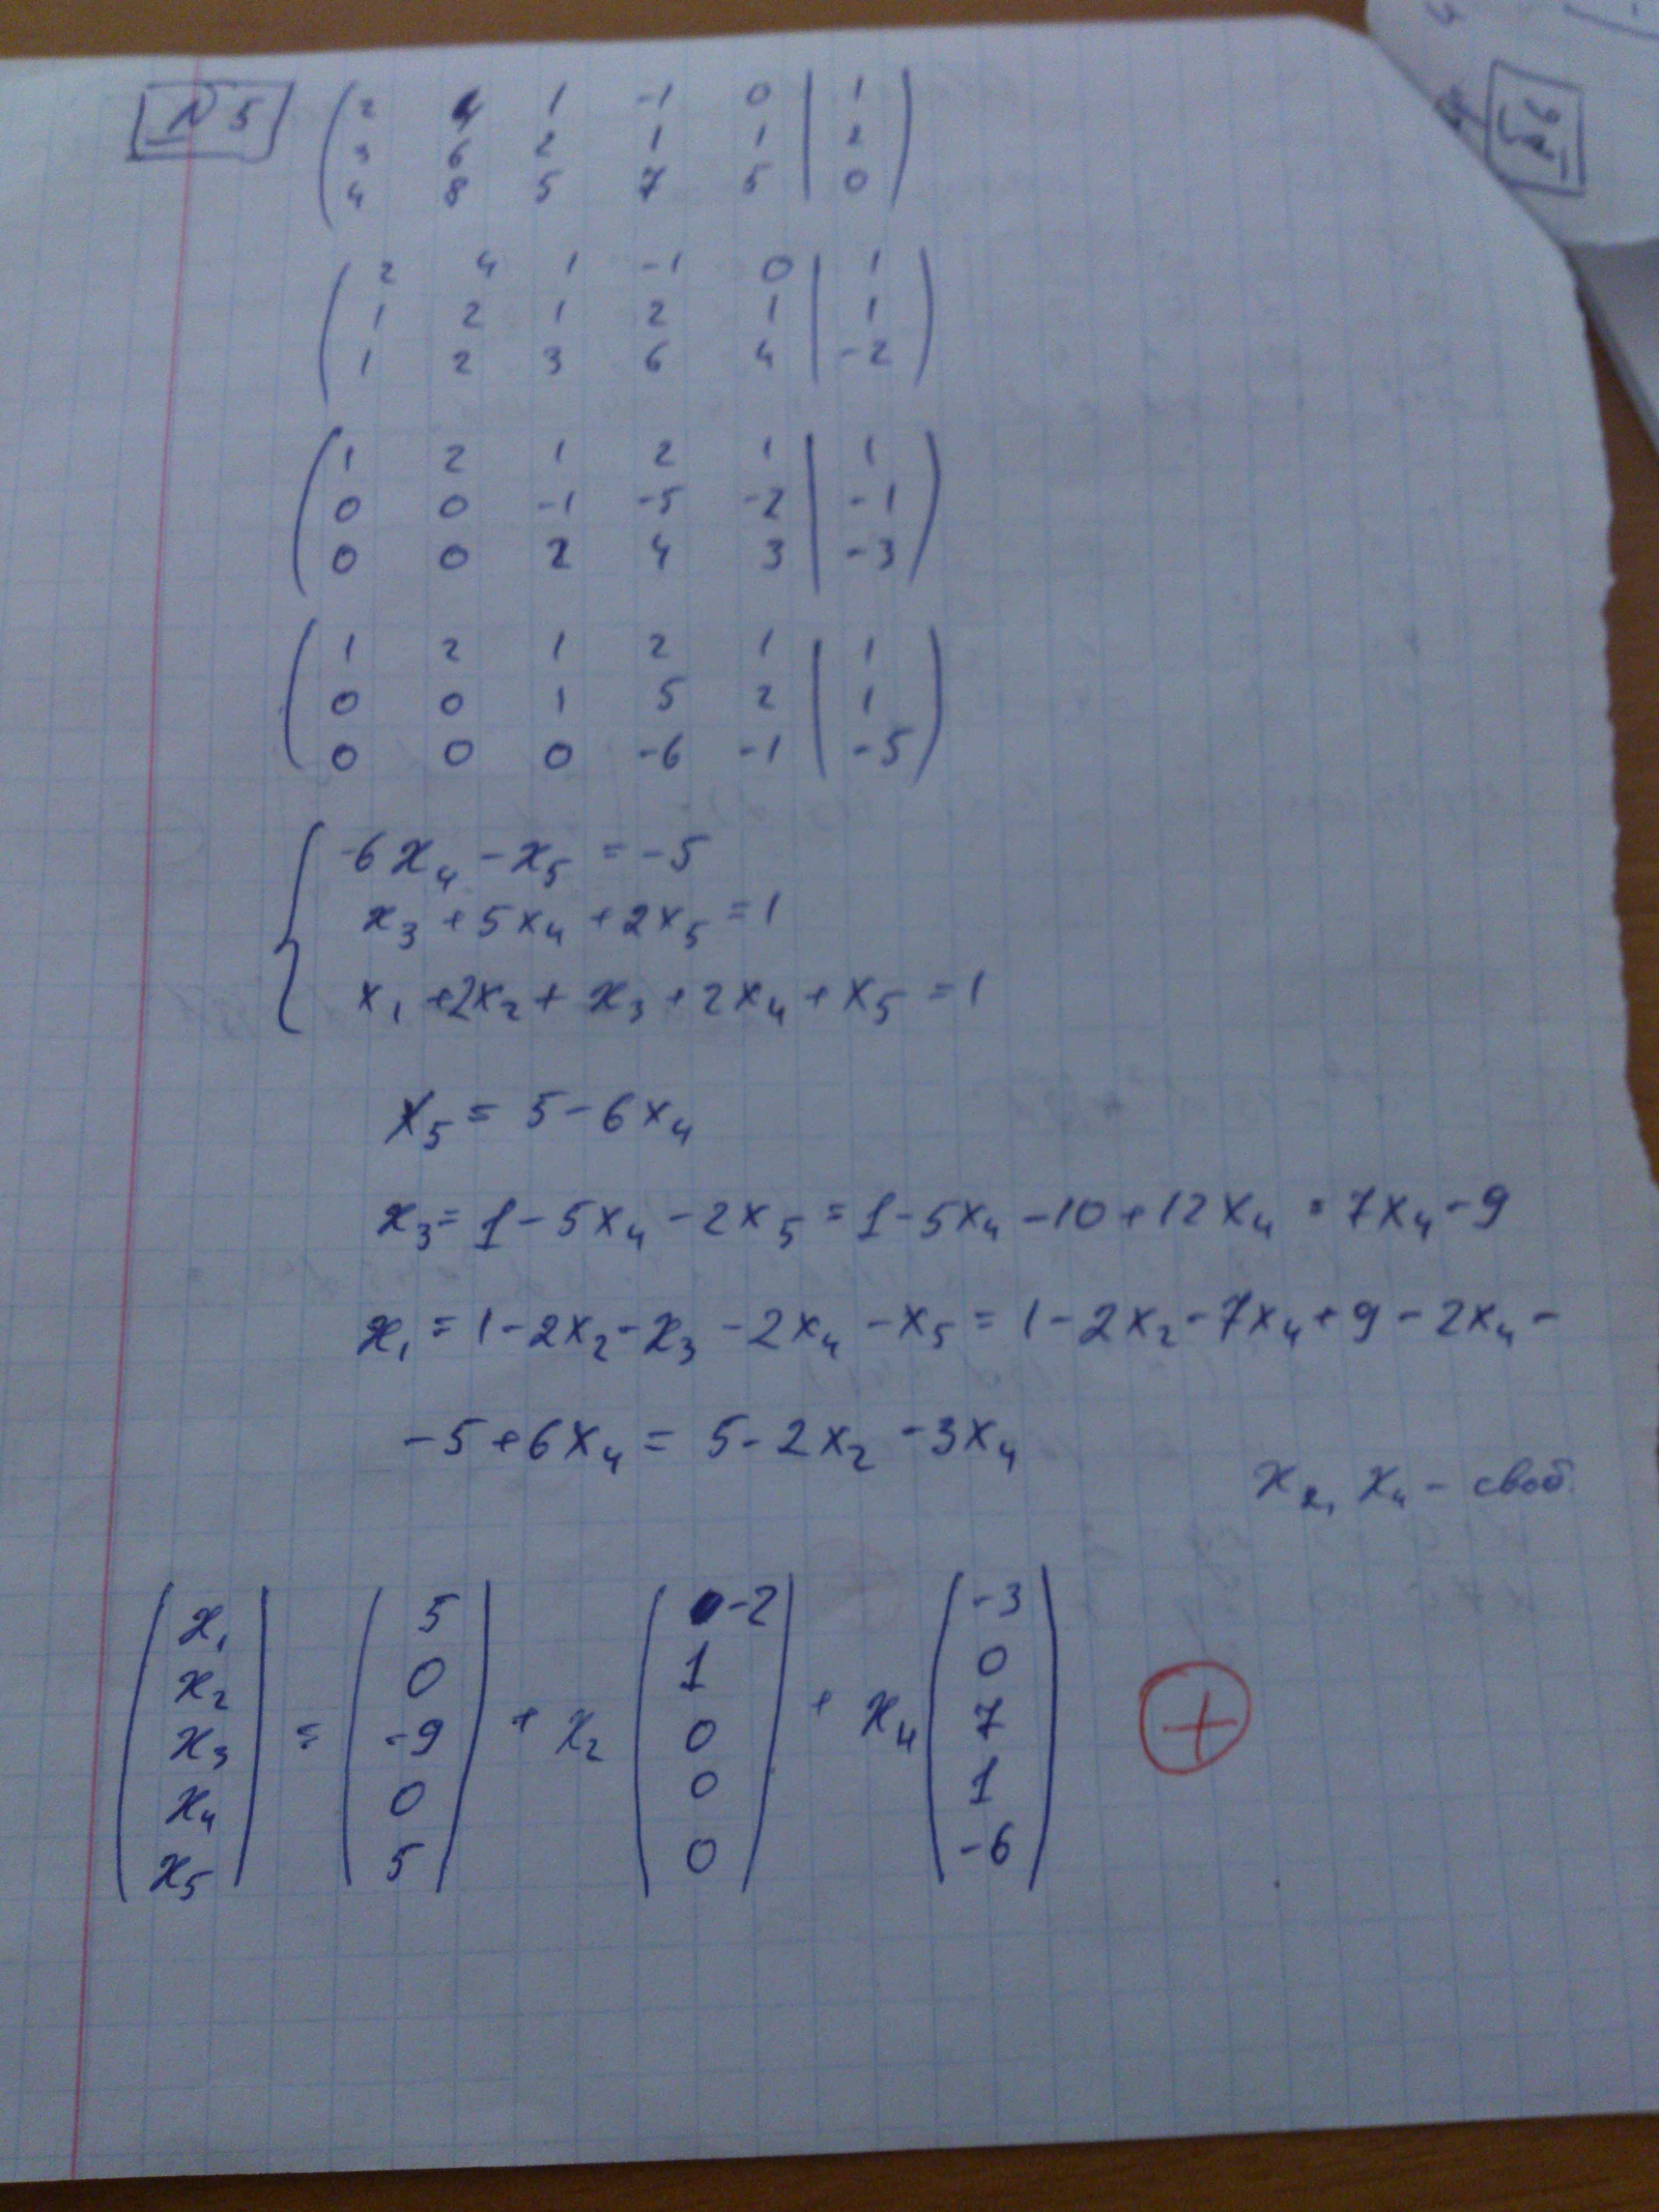 N 5
2 4 1 -1 0 | 1
3 6 2 1 1 | 2
4 8 5 7 5 | 0
2 4 1 -1 0 | 1
1 2 1 2 1 | 1
1 2 3 6 4 | -2
1 2 1 2 1 | 1
0 0 -1 -5 -2 | -1
0 0 2 4 3 | -3
1 2 1 2 1 | 1
0 0 1 5 2 | 1
0 0 0 -6 -1 | -5
-6x₄ - x₅ = -5
x₃ + 5x₄ + 2x₅ = 1
x₁ + 2x₂ + x₃ + 2x₄ + x₅ = 1
x₅ = 5 - 6x₄
x₃ = 1 - 5x₄ - 2x₅ = 1 - 5x₄ - 10 + 12x₄ = 7x₄ - 9
x₁ = 1 - 2x₂ - x₃ - 2x₄ - x₅ = 1 - 2x₂ - 7x₄ + 9 - 2x₄ -
- 5 + 6x₄ = 5 - 2x₂ - 3x₄
x₂, x₄ - своб.
x₁ 5 -2 -3
x₂ 0 1 0
x₃ = -9 + x₂ 0 + x₄ 7
x₄ 0 0 1
x₅ 5 0 -6
+